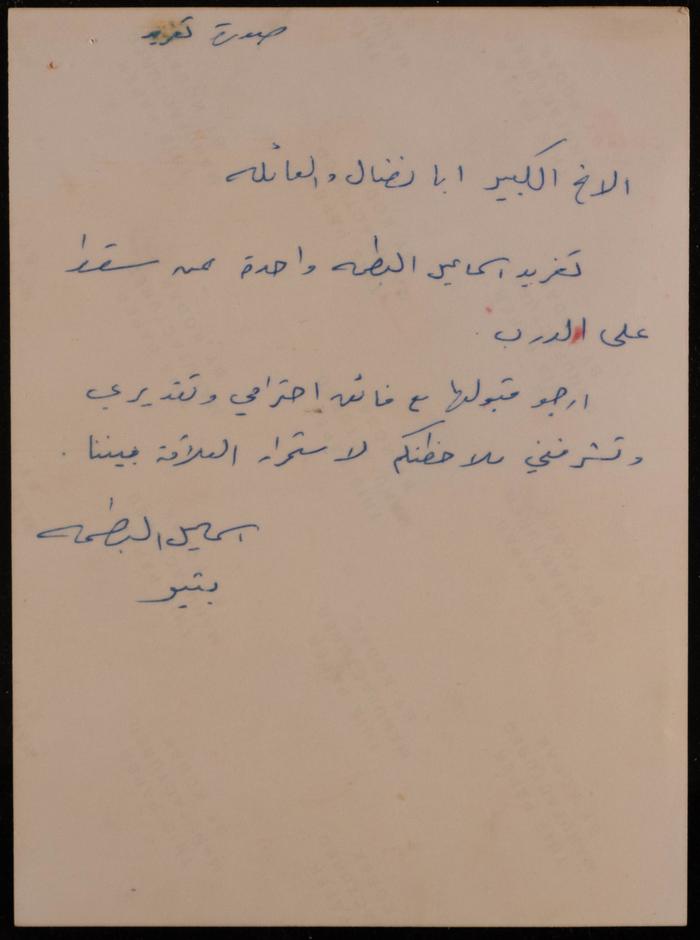 صورة تغريد
الاخ الكبير ابا نضال والعائله
تغريد اسماعيل البطمه واحدة ممن سقطوا
على الدرب.
ارجو قبولها مع فائق احترامي وتقديري
وتشرفني ملاحظتكم لاستمرار العلاقة بيننا.
اسماعيل البطمه
بتير